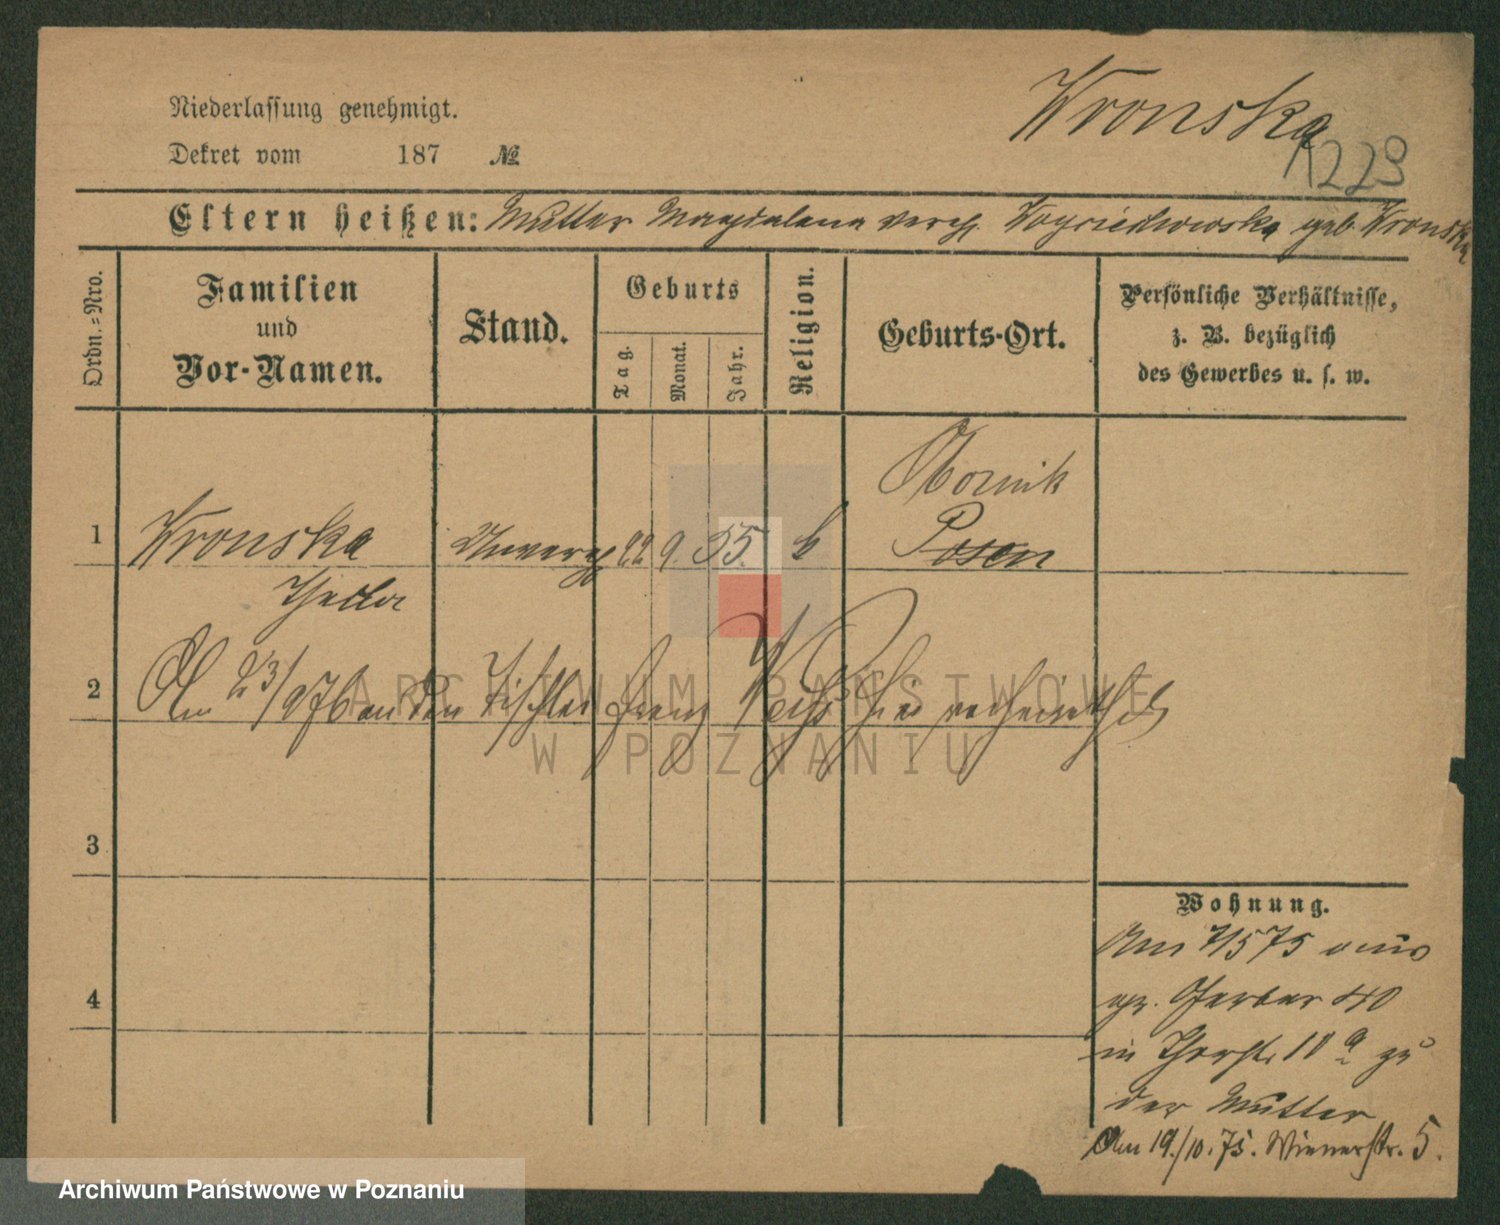 Wronska
1229
Niederlassung genehmigt.
Dekret vom 187 №
Eltern heißen: Mutter Magdalena verehl. geb. Wronska
Ordn.-Nro.
Familien
und
Vor-Namen.
Stand.
Geburts
Tag.
Monat.
Jahr.
Religion.
Geburts-Ort.
Persönliche Verhältnisse,
z. B. bezüglich
des Gewerbes u. s. w.
Obornik
1 Wronska Unverh 22 9. 55. k Posen
Thecla
2 Am 23/9 76 an den Tischler Franz hier verheirathet
3
4
Wohnung.
Am 7/5 75 aus
gr. Gerber 40
in Thorstr 10a zu
der Mutter
Am 19./10.75. Wienerstr. 5.
ARCHIWUM PAŃSTWOWE
W POZNANIU
Archiwum Państwowe w Poznaniu